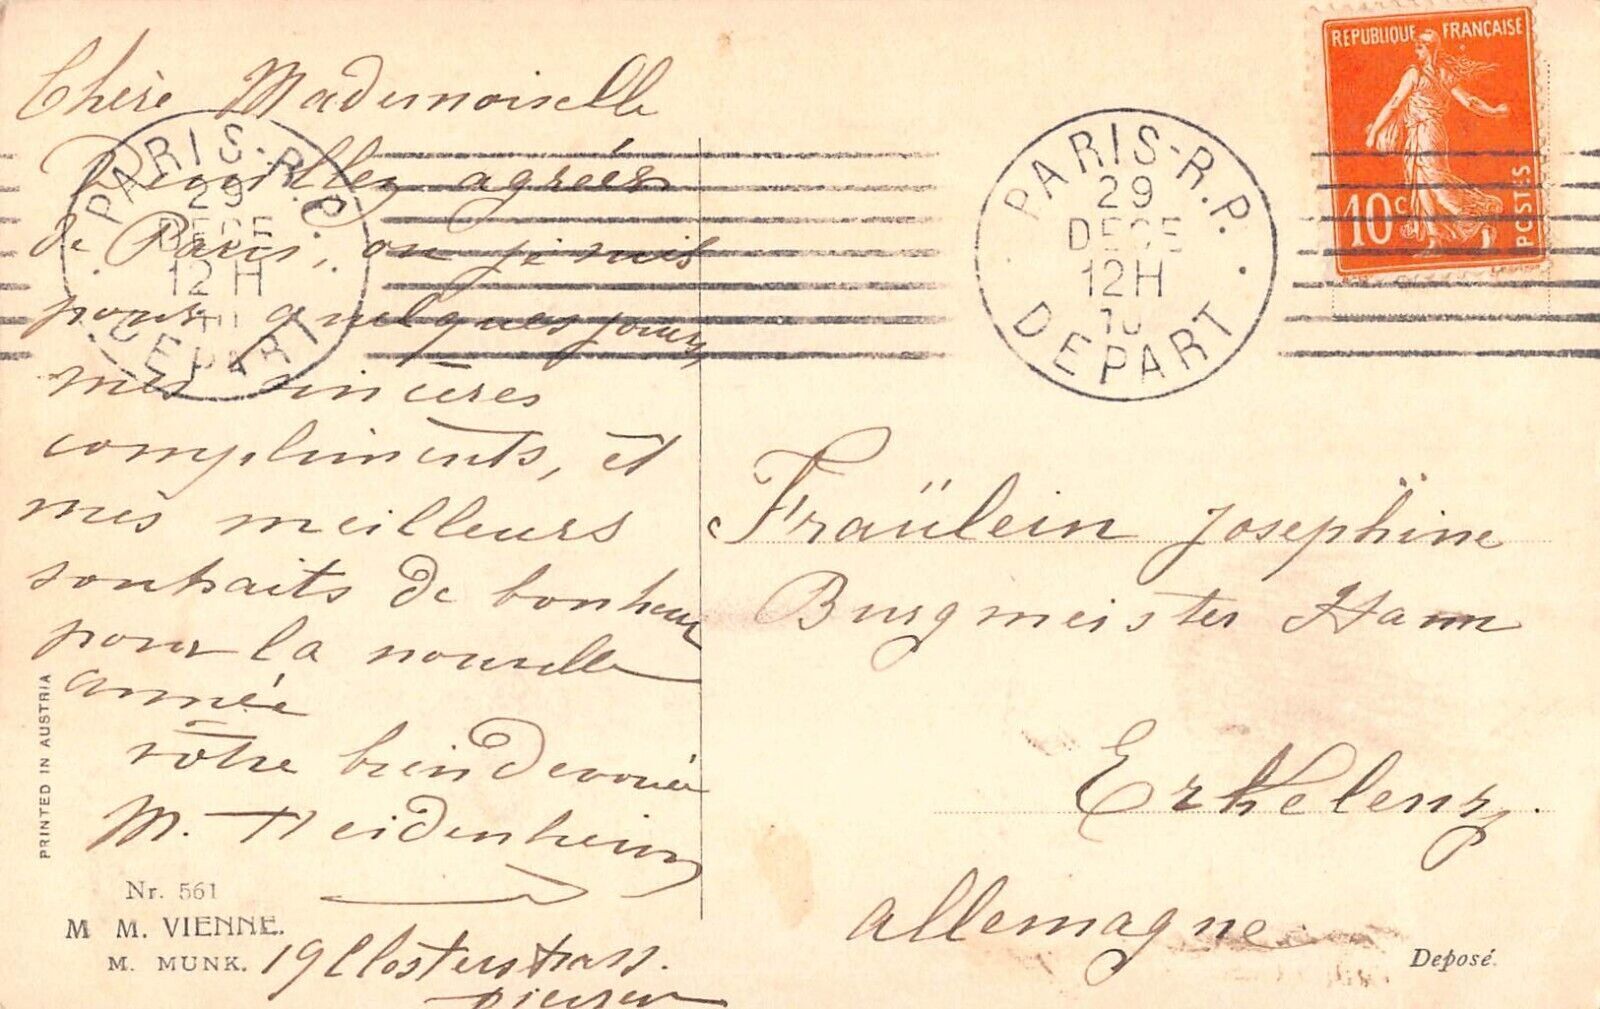 Chère Mademoiselle
Veuillez agréer
de Paris, ou je suis
pour quelques jours
mes sincères
compliments, et
mes meilleurs
souhaits de bonheur
pour la nouvelle
année
votre bien devouée
M. Heidenheim
19 Closterstrass.
PARIS-R.P.
29
DECE
12H
DEPART
PARIS-R.P.
29
DECE
12H
10
DEPART
REPUBLIQUE FRANÇAISE
10c
POSTES
Fraülein Josephine
Burgmeister Hann
Erkelenz.
Allemagne
Deposé.
PRINTED IN AUSTRIA
Nr. 561
M M. VIENNE.
M. MUNK.